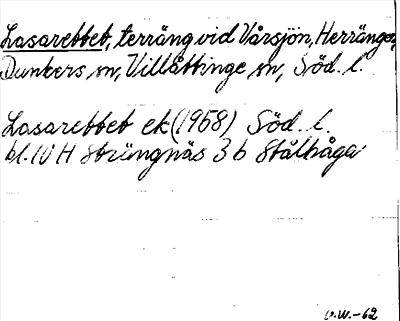 Lasarettet, terräng vid Vårsjön, Herrängen,
Dunkers sn, Villåttinge sn, Söd. l.
Lasarettet ek (1958) Söd. l.
bl. 10 H Strängnäs 3 b Stålhåga
O.W.-62